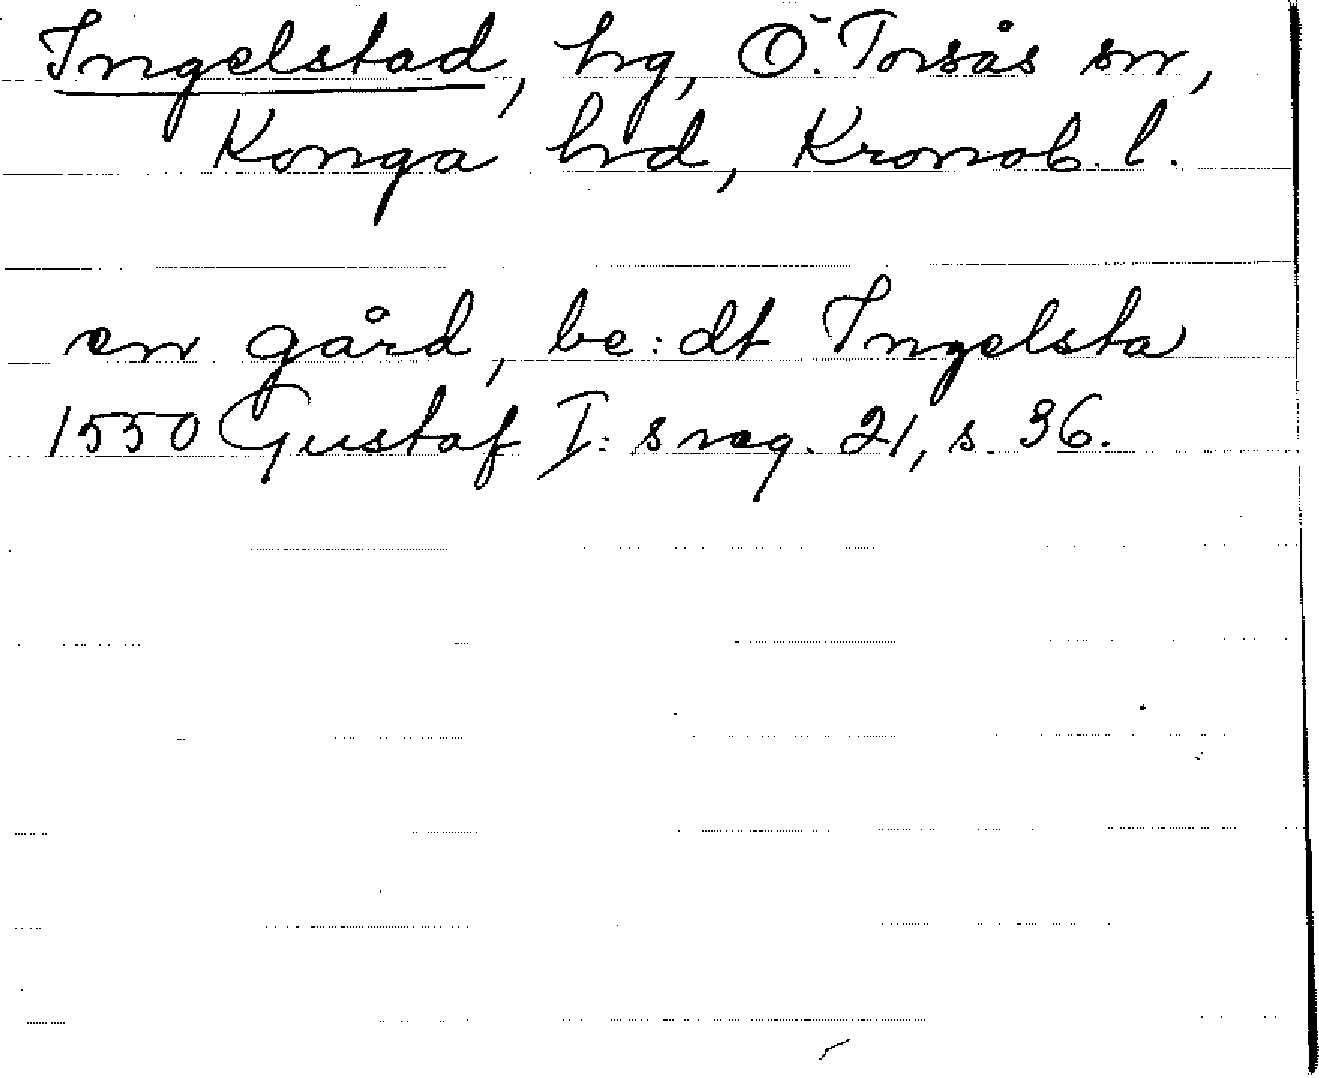 Ingelstad, hg, Ö. Torsås sn,
Konga hd, Kronob. l.
en gård, be:dt Ingelsta
1550 Gustaf I:s reg. 21, s 36.